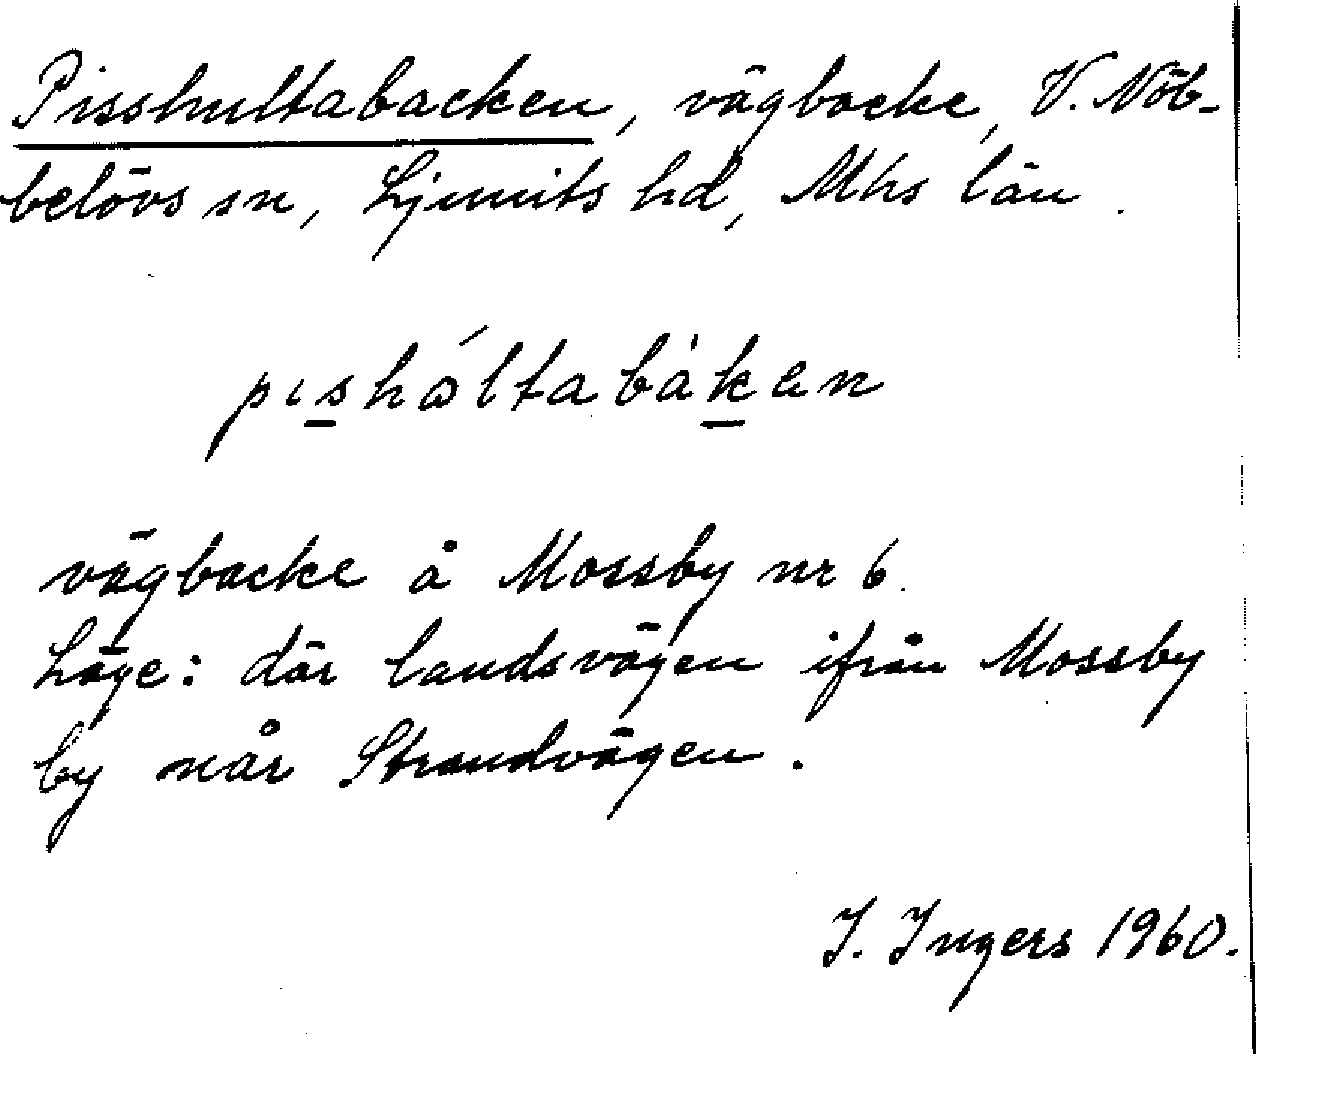 Pisshultabacken, vägbacke, V. Nöb-
belövs sn, Ljunits hd, Mhs län.
pıshåltabaken
vägbacke å Mossby nr 6.
Läge: där landsvägen ifrån Mossby
by når Strandvägen.
I. Ingers 1960.